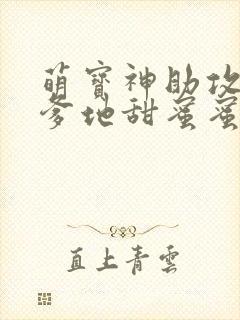 萌寶神助攻
爹地甜蜜蜜
直上青雲